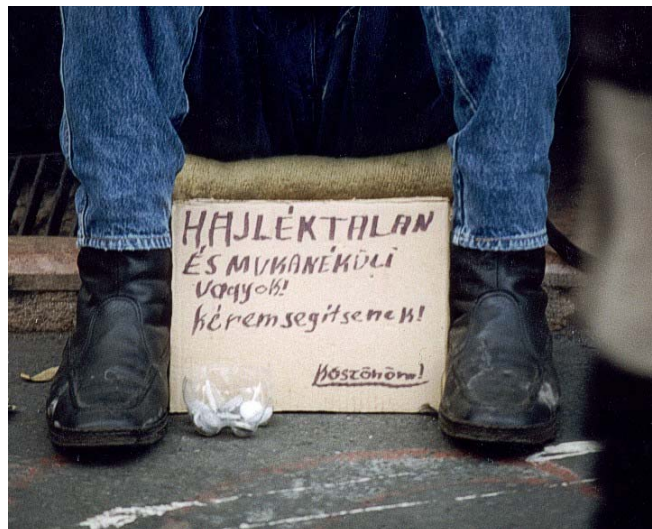 HAJLÉKTALAN
ÉS MUKANÉKÜLI
vagyok!
kérem segítsenek!
Köszönöm!